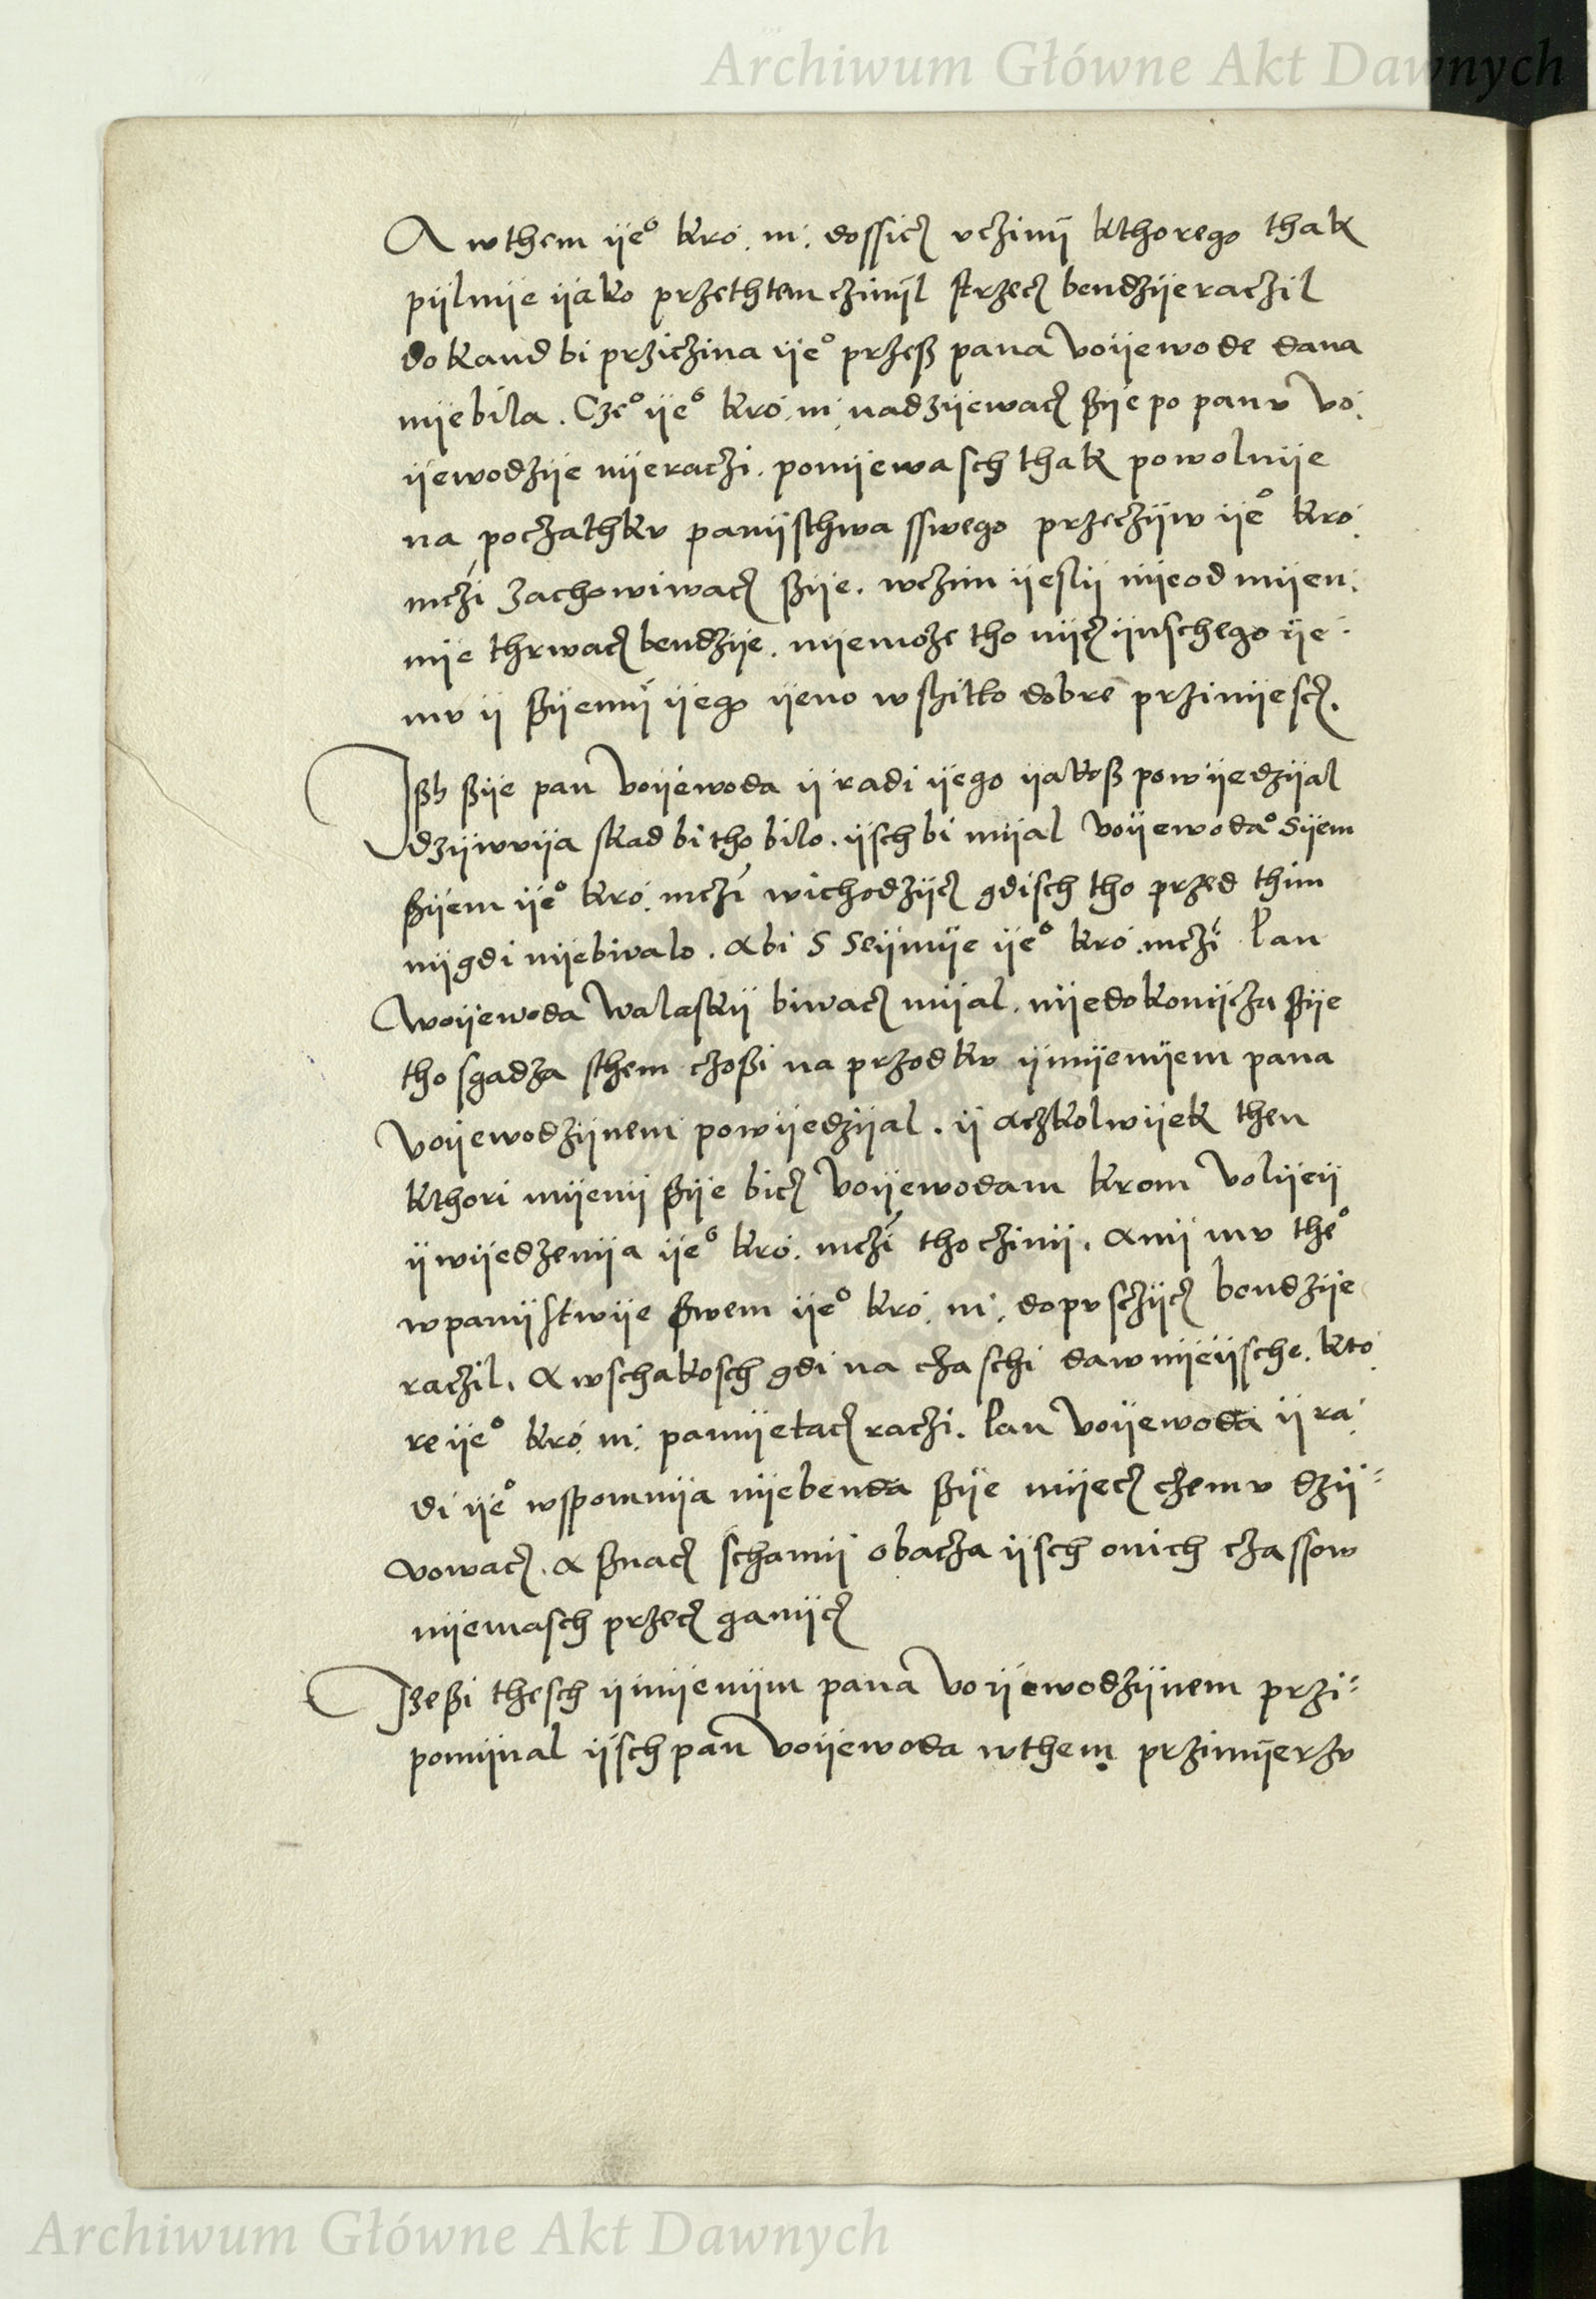 Archiwum Główne Akt Dawnych
A wthem ije° kro. m. dossicz vczinij kthorego thak
pijlnije ijako przethtem czinijl strzecz bendzije raczil
dokand bi przicźina ije° przeß pana voijewode dana
nijebila. Cze° ije° kro. m. nadzijewacz ßije po panv vo.
ijewodzije nijeraczi. ponijewasch thak powolnije
na poczathkv panijsthwa sswego przeczijw ije° kro.
mczi zachowiwacz ßije. wczim ijeslij nijeodmijen.
nije thrwacz bendzije. nijemoze tho nijcz ijnschego ije.
mv ij ßijemij ijego ijeno wshitko dobre przinijescz.
Ißh ßije pan voijewoda ij radi ijego ijakoß powijedzijal
dzijwvija skad bi tho bilo. ijsch bi mijal voijewoda° sijem
ßijem ije° kro. mczi wichodzijcz gdisch tho przed thim
nijgdi nijebivalo. abi s seijmije ije° kro. mczi Pan
woijewoda walaskij biwacz mijal. nijedokonijcza ßije
tho sgadza sthem czoßi na przodkv ijmijenijem pana
voijewodzijnem powijedzijal. ij aczkolwijek then
kthori mijenij ßije bicz voijewodam krom volijeij
ij wijedzenija ije° kro. mczi tho czinij. anij mv the°
wpanijstwije ßwem ije° kro. m. dopvsczijcz bendzije
raczil. a wschakosch gdi na czaschi dawnijeijsche. kto.
re ije° kro. m. pamijetacz raczi. Pan voijewoda ij ra.
di ije° wspomnija nijebenda ßije mijecz czemv dzij=
vowacz. a ßnacz schamij obacza ijsch onich czassow
nijemasch przecz ganijcz
Izeßi thesch ijmijenijm pana voijewodzijnem przi=
pomijnal ijsch pan voijewoda wthem przimijerzv
Archiwum Główne Akt Dawnych